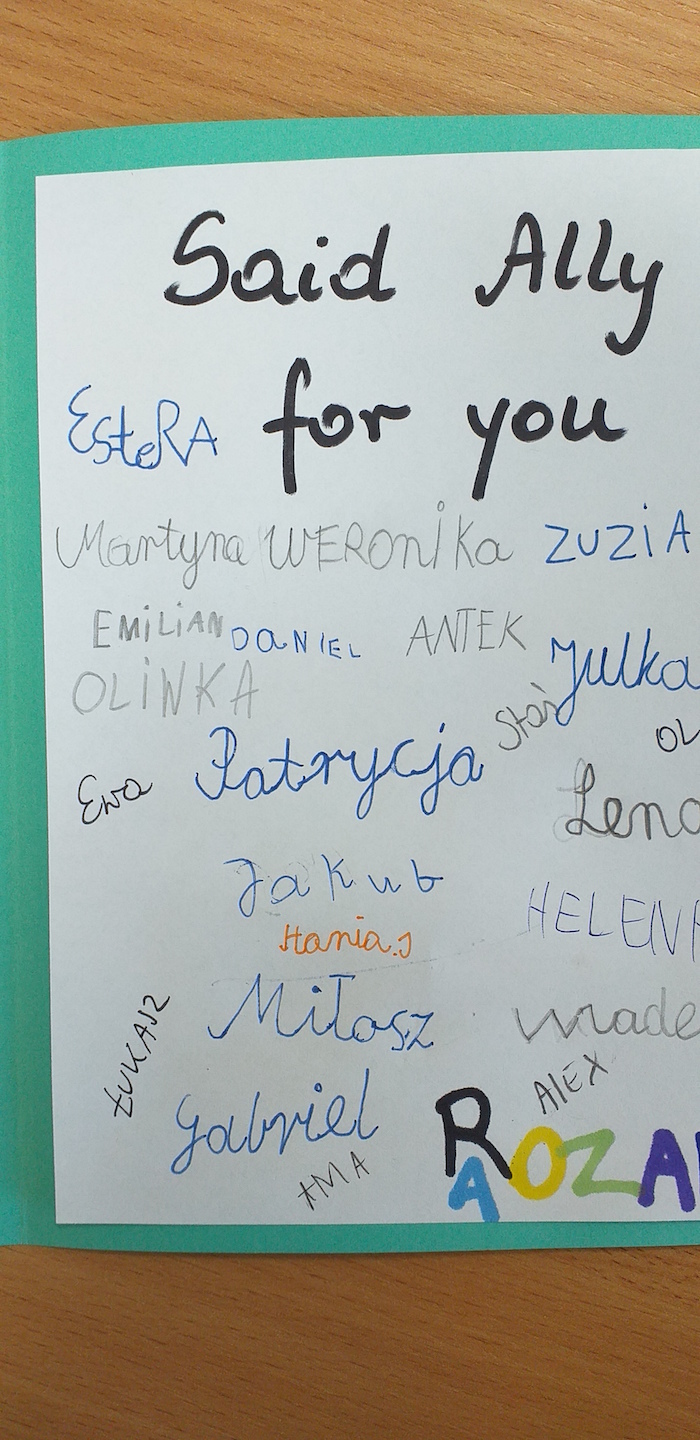 Said Ally
for you
EsteRA
Martyna WERONiKa ZUZiA
EMiLiAN DaNIEL ANTEK Julka
OLiNKA Staś
Patrycja OL
Ewa Lena
Jakub HELENA
Hania.J
Miłosz
ŁUKASZ ALEX
Gabriel
AMA